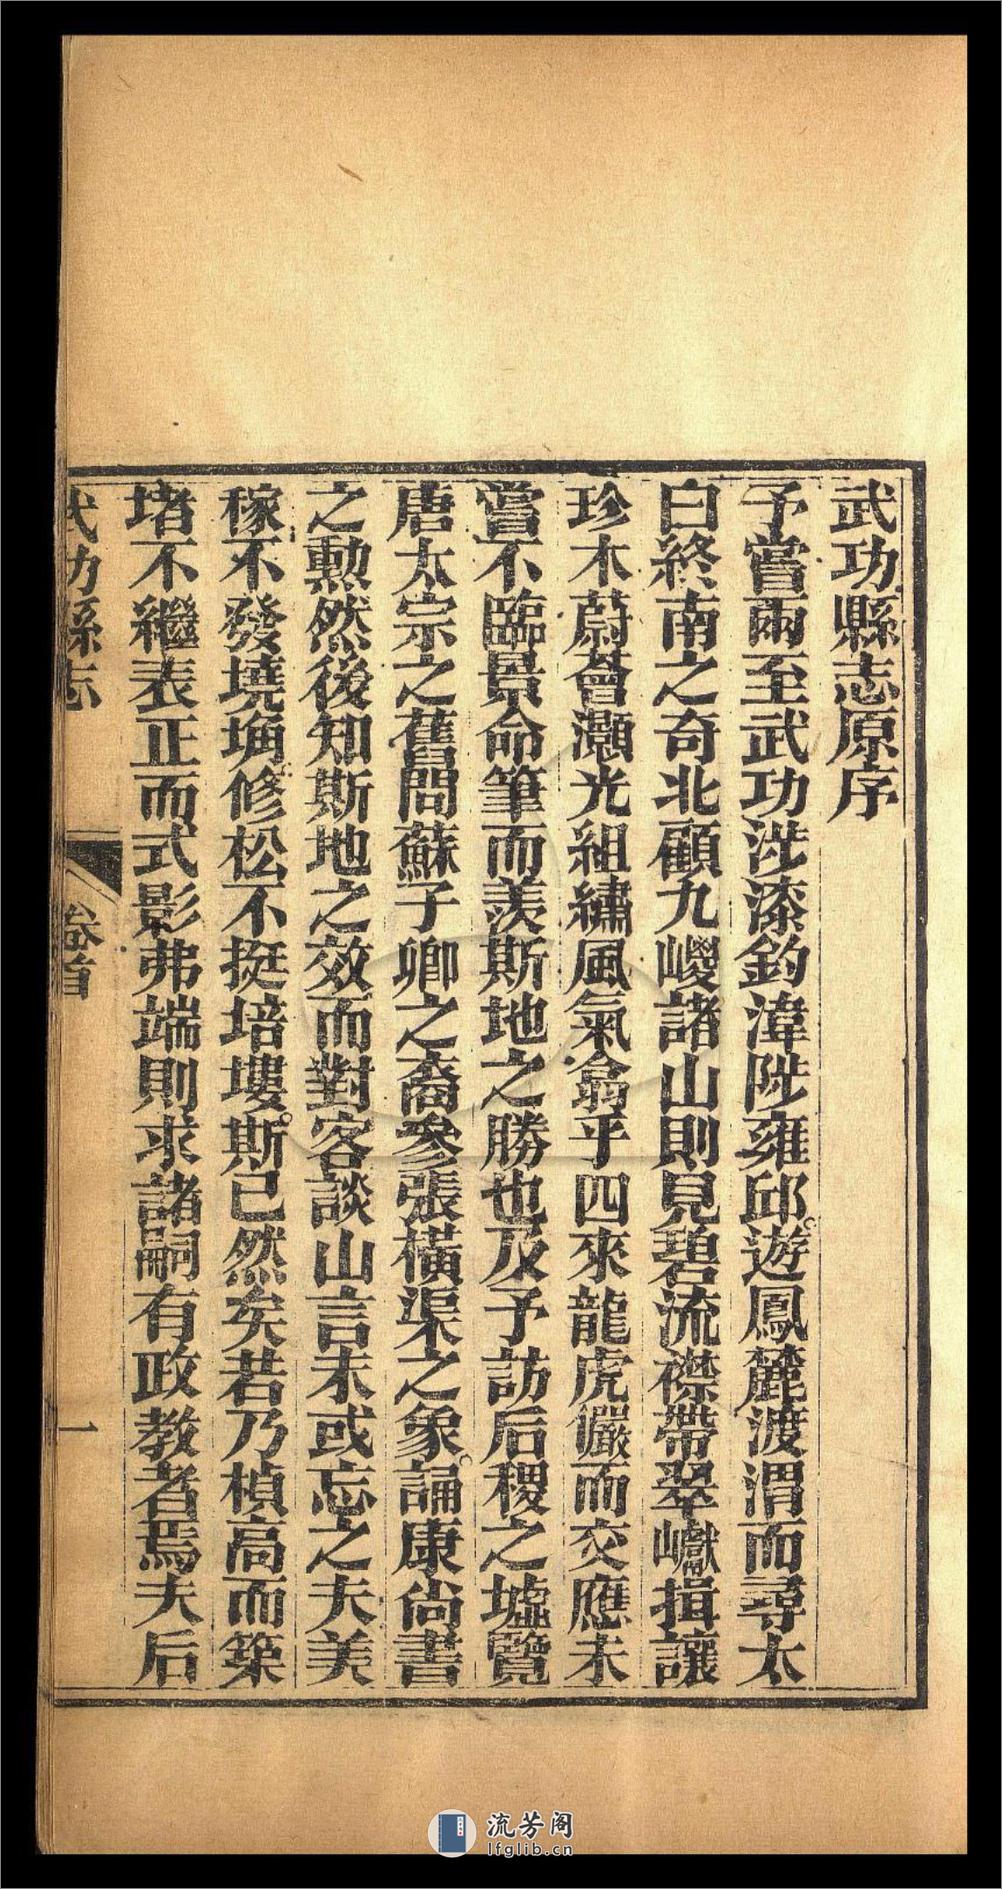 武功縣志原序
予嘗兩至武功涉漆釣湋陟雍邱遊鳳麓渡渭而尋太
白終南之奇北顧九嵕諸山則見碧流襟帶翠巘揖讓
珍木蔚薈灝光組繡風氣翕乎四來龍虎儼而交應未
嘗不臨景命筆而羨斯地之勝也及予訪后稷之墟覽
唐太宗之舊問蘇子卿之裔參張橫渠之象誦康尚書
之勳然後知斯地之效而對客談山言未或忘之夫美
稼不發墝埆修松不挺培塿斯已然矣若乃楨高而築
堵不繼表正而式影弗端則求諸嗣有政教者焉夫后
武功縣志
卷首
一
流芳阁
lfglib.cn